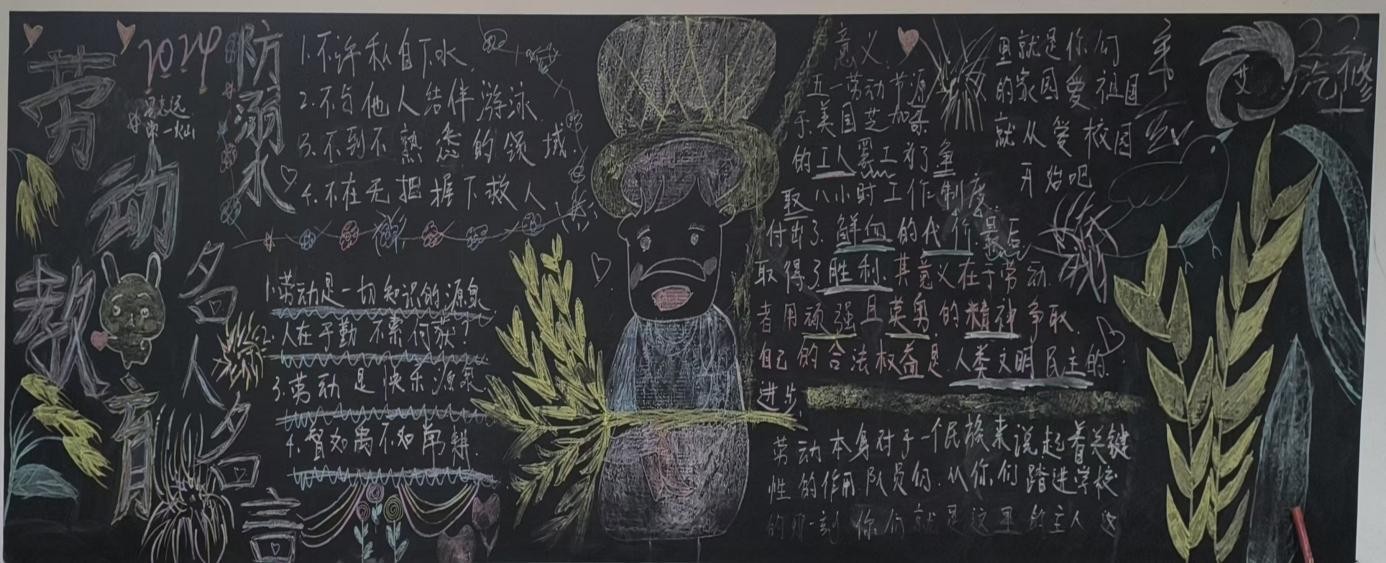 劳动教育
2024
防溺水
1.不许私自下水
2.不与他人结伴游泳
3.不到不熟悉的领域
4.不在无把握下救人
名人名言
1.劳动是一切知识的源泉
2.人在于勤 不索何获?
3.劳动是快乐源泉
4.
意义
五一劳动节源
于美国芝加哥
的工人罢工 为了
取八小时工作制度
付出了鲜血的代价 最后
取得了胜利.其意义在于劳动
者用顽强且英勇的精神争取
自己的合法权益是人类文明民主的
进步
劳动本身对于一个民族来说起着关键
性的作用队员们.从你们踏进学校
的那一刻 你们就是这里的主人 这
里就是你们
的家园爱祖国
就从爱校园
开始吧
22
汽修